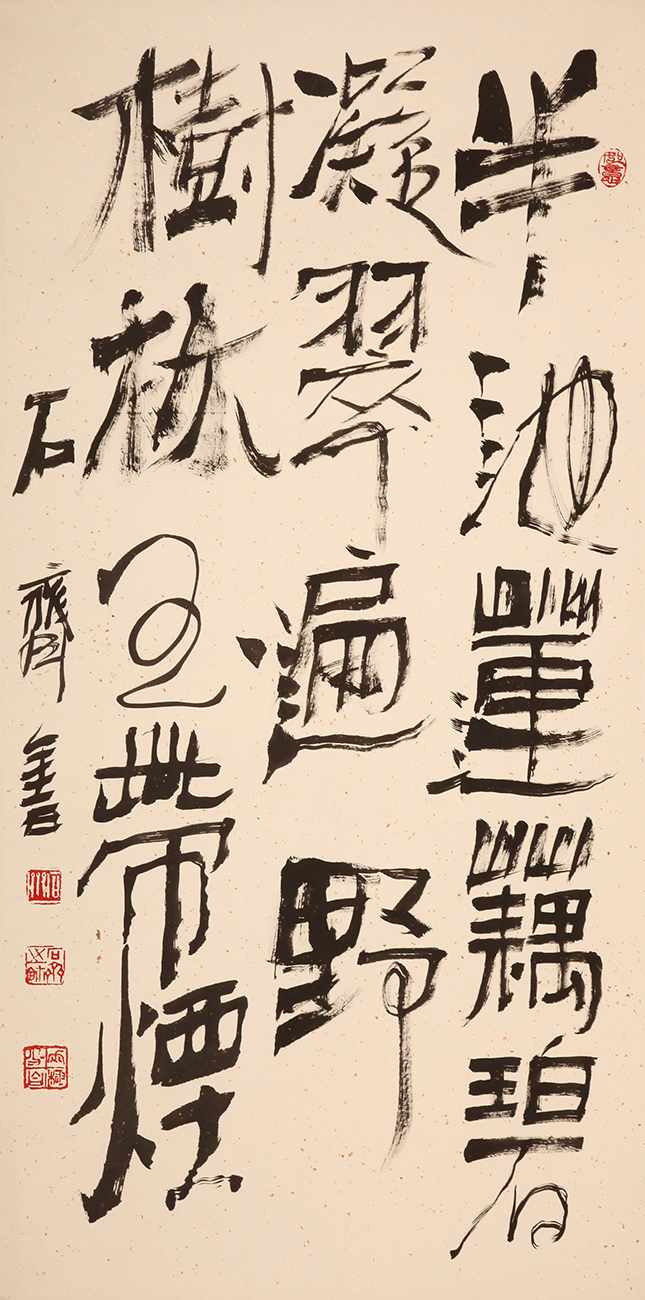 半池蓮藕碧
凝翠遍野
樹林帶煙
石齊書